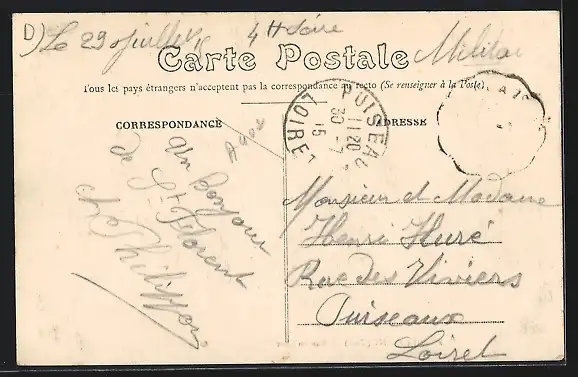 D) Le 29 Juillet 15 4 H Soire
Carte Postale
Militai
Tous les pays étrangers n'acceptent pas la correspondance au recto (Se renseigner à la Poste)
CORRESPONDANCE
ADRESSE
PUISEAUX
11 20
30 - 7
15
LOIRET
un bonjour
de St Florent
Philippon
Monsieur et Madame
Henri Huré
Rue des Viviers
Puiseaux
Loiret